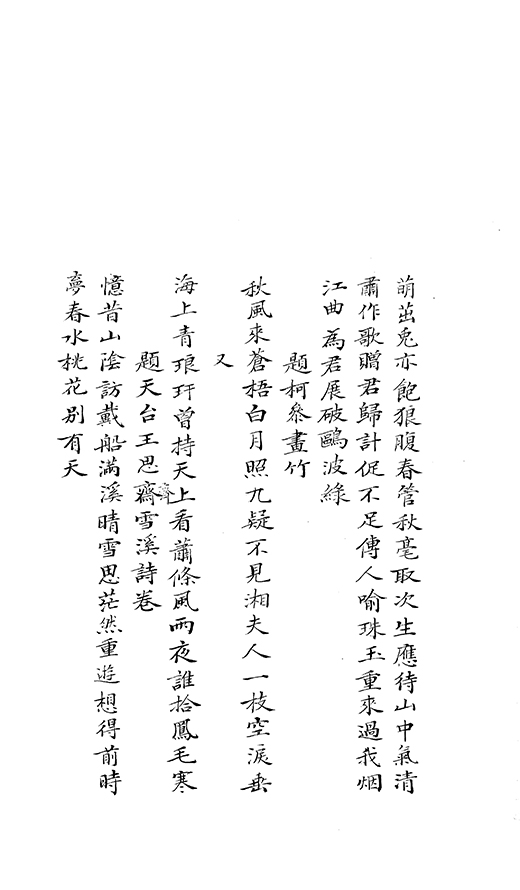 萌茁兔亦飽狼腹春管秋毫取次生應待山中氣清
肅作歌贈君歸計促不足傳人喻珠玉重來過我烟
江曲為君展破鷗波綠
題柯叅畫竹
秋風來蒼梧白月照九疑不見湘夫人一枝空淚垂
又
海上青琅玕曾持天上看蕭條風雨夜誰拾鳳毛寒
題天台王思齋雪溪詩卷
憶昔山陰訪戴船滿溪晴雪思茫然重遊想得前時
夢春水桃花別有天